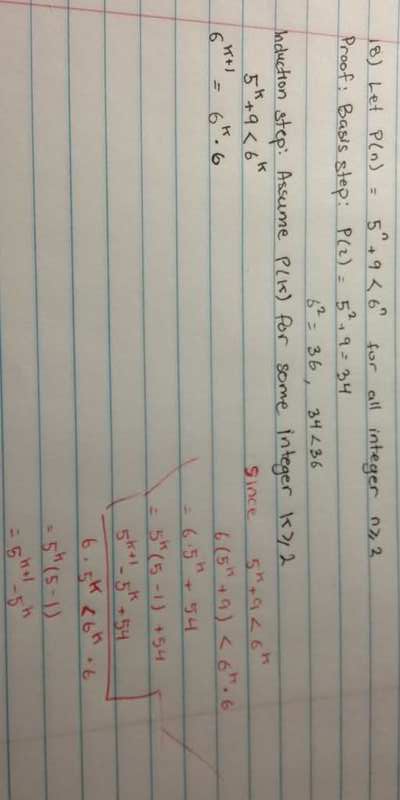 18) Let P(n) = 5^n + 9 < 6^n for all integer n ≥ 2
Proof: Basis step: P(2) = 5^2 + 9 = 34
6^2 = 36, 34 < 36
Induction step: Assume P(k) for some integer k ≥ 2
5^k + 9 < 6^k
6^{k+1} = 6^k · 6
Since 5^k + 9 < 6^k
6(5^k + 9) < 6^k · 6
= 6 · 5^k + 54
= 5^k (5 - 1) + 54
5^{k+1} - 5^k + 54
6 · 5^k < 6^k · 6
= 5^k (5 - 1)
= 5^{k+1} - 5^k